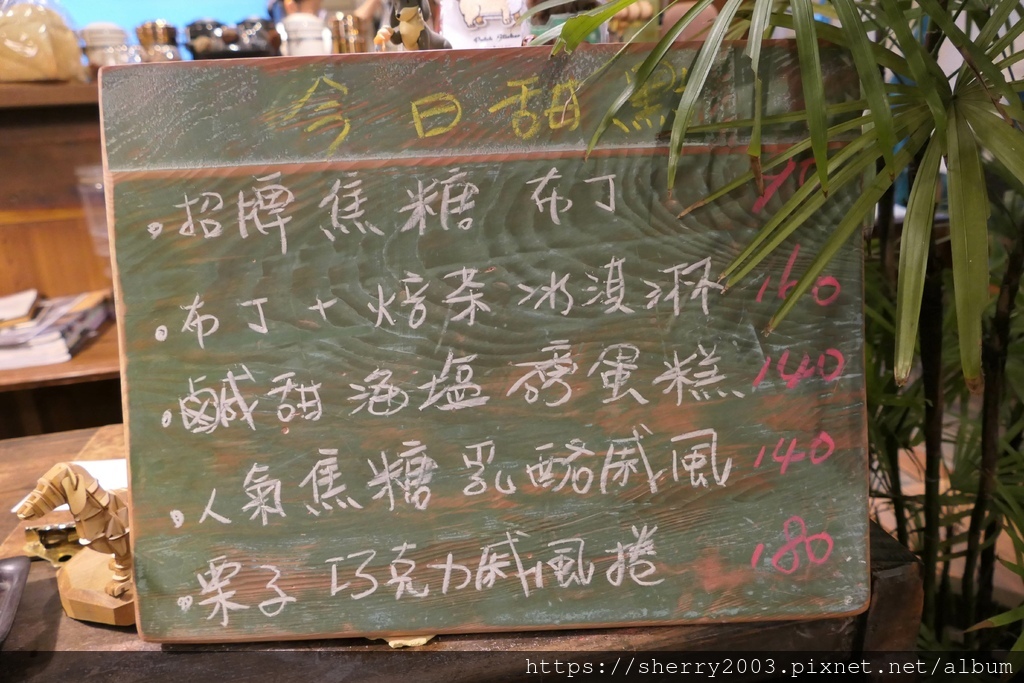 今日甜點
招牌焦糖布丁
布丁+焙茶冰淇淋 160
鹹甜海塩磅蛋糕 140
人氣焦糖乳酪戚風 140
栗子巧克力戚風捲 180
https://sherry2003.pixnet.net/album